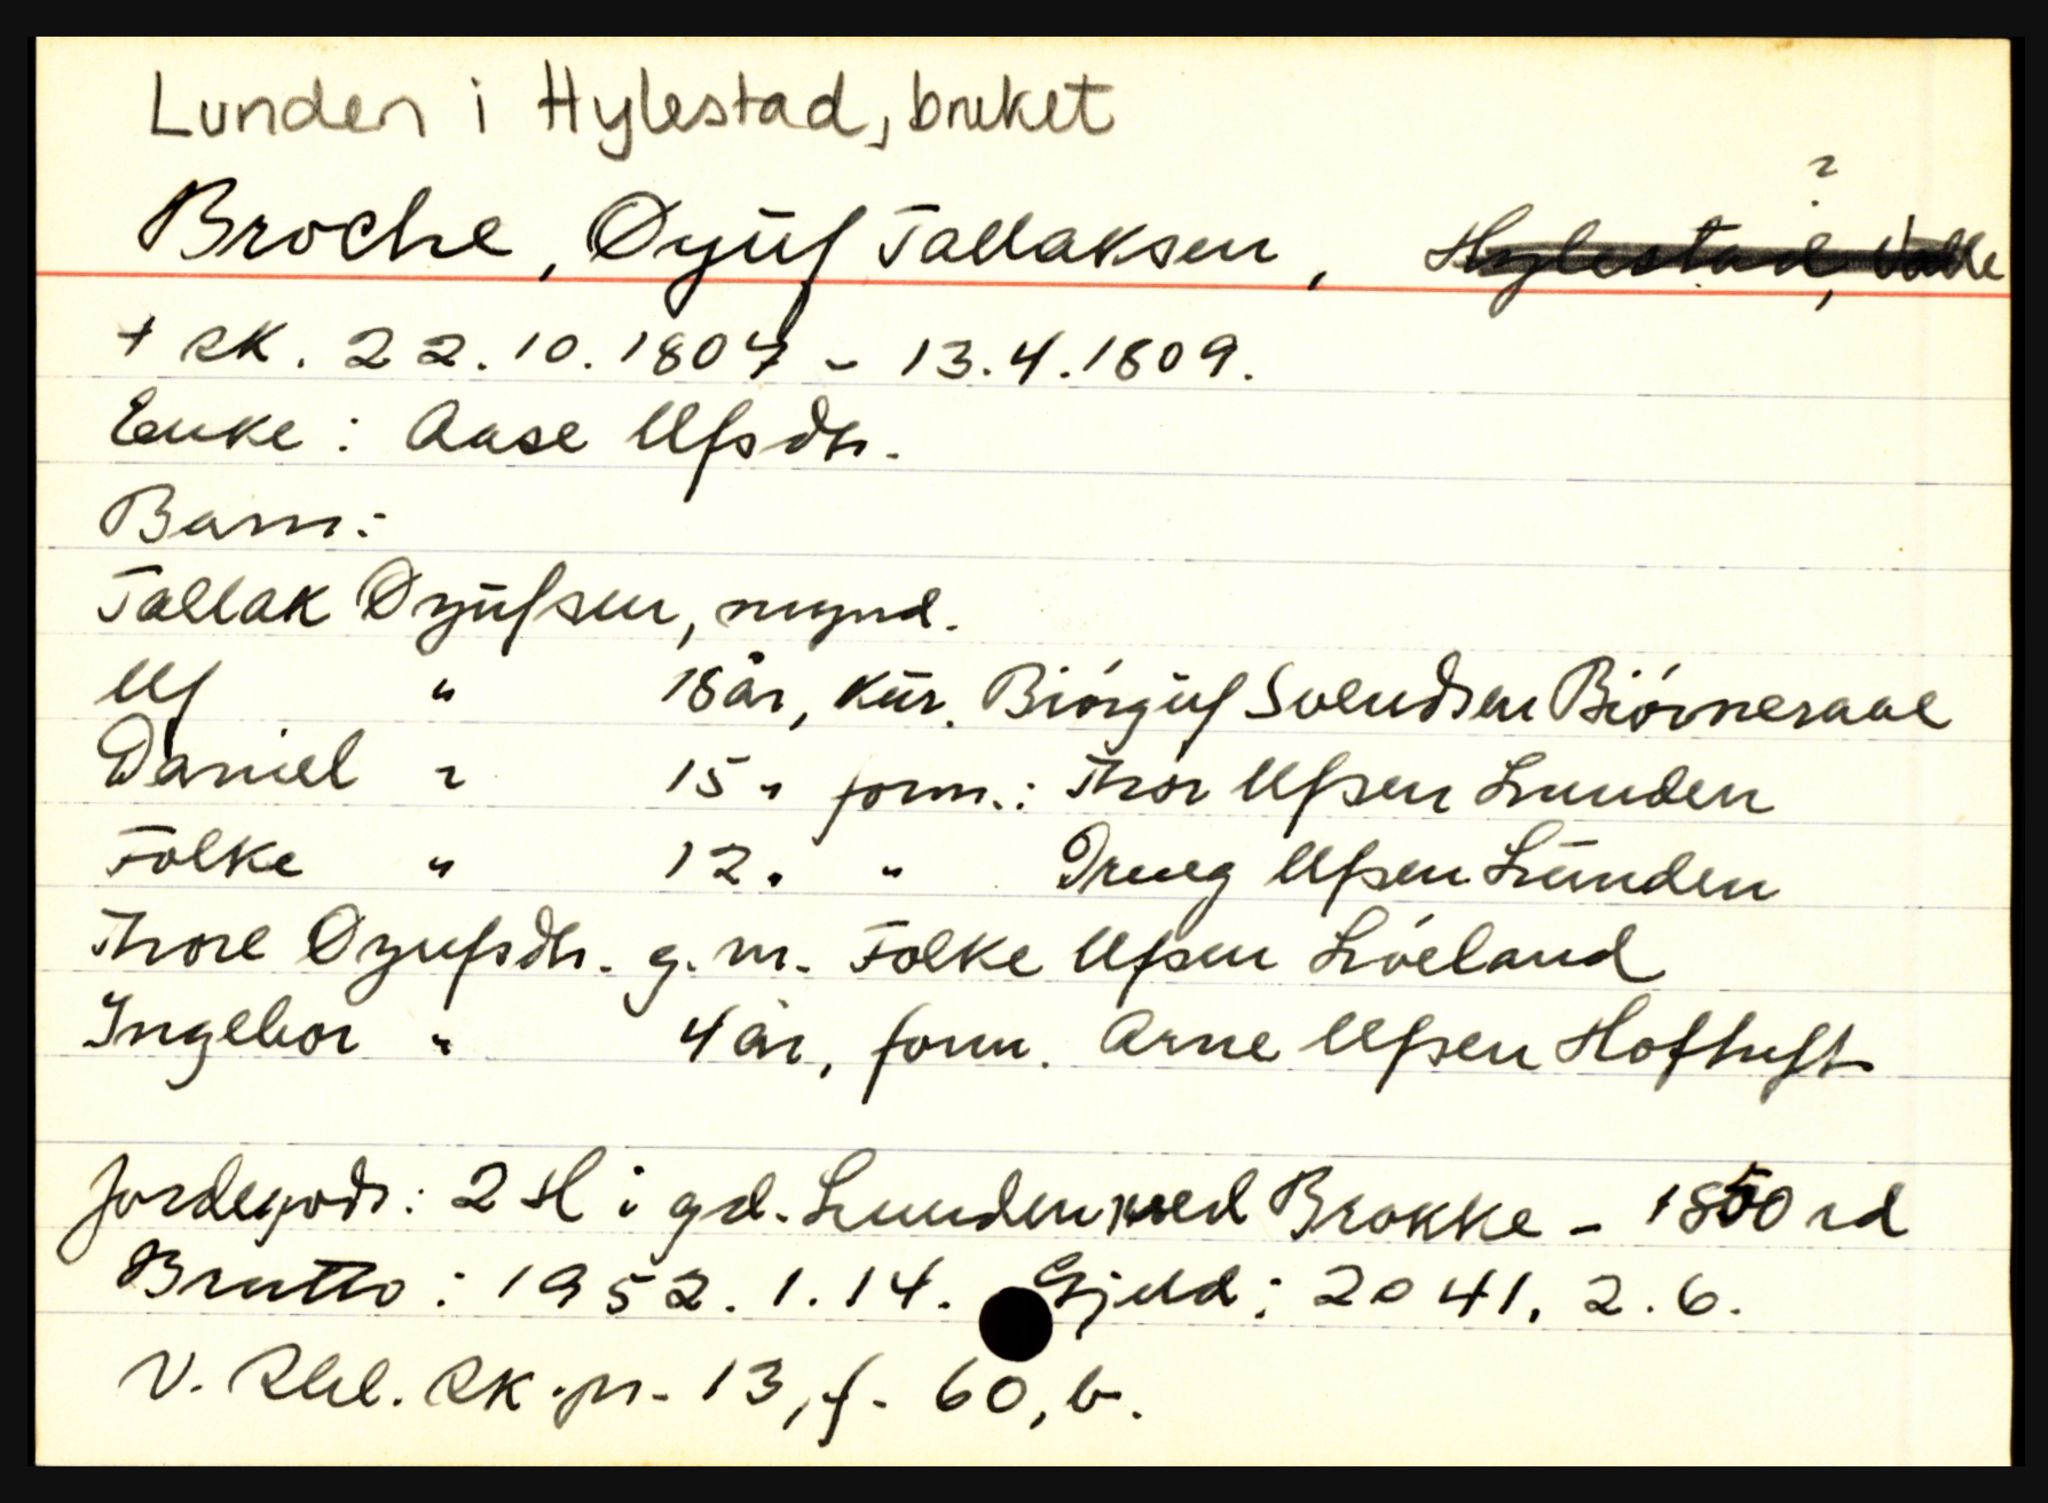 Lunden i Hylestad, bruket
?
Broche, Øyuf Tallaksen, Hylestad, Valle
+ sk. 22.10.1807 - 13.4.1809.
Enke: Aase Ulfsdtr.
Barn:
Tallak Øyufsen, mynd.
Ulf " 18 år, kur. Biórguf Svendsen Biórneraae
Daniel " 15 " form.: Thor Ulfsen Lunden
Folke " 12 " " Dreug Ulfsen Lunden
Thore Øyufsdtr. g.m. Folke Ulfsen Lióeland
Ingebor " 4 år, form. Arne Ulfsen Hoftuft
Jordegods: 2 H i gd. Lunden med Brokke - 1850 rd
Brutto: 1952.1.14. Gjeld: 2041.2.6.
V. Rbl. sk.pr. 13, f. 60, b.